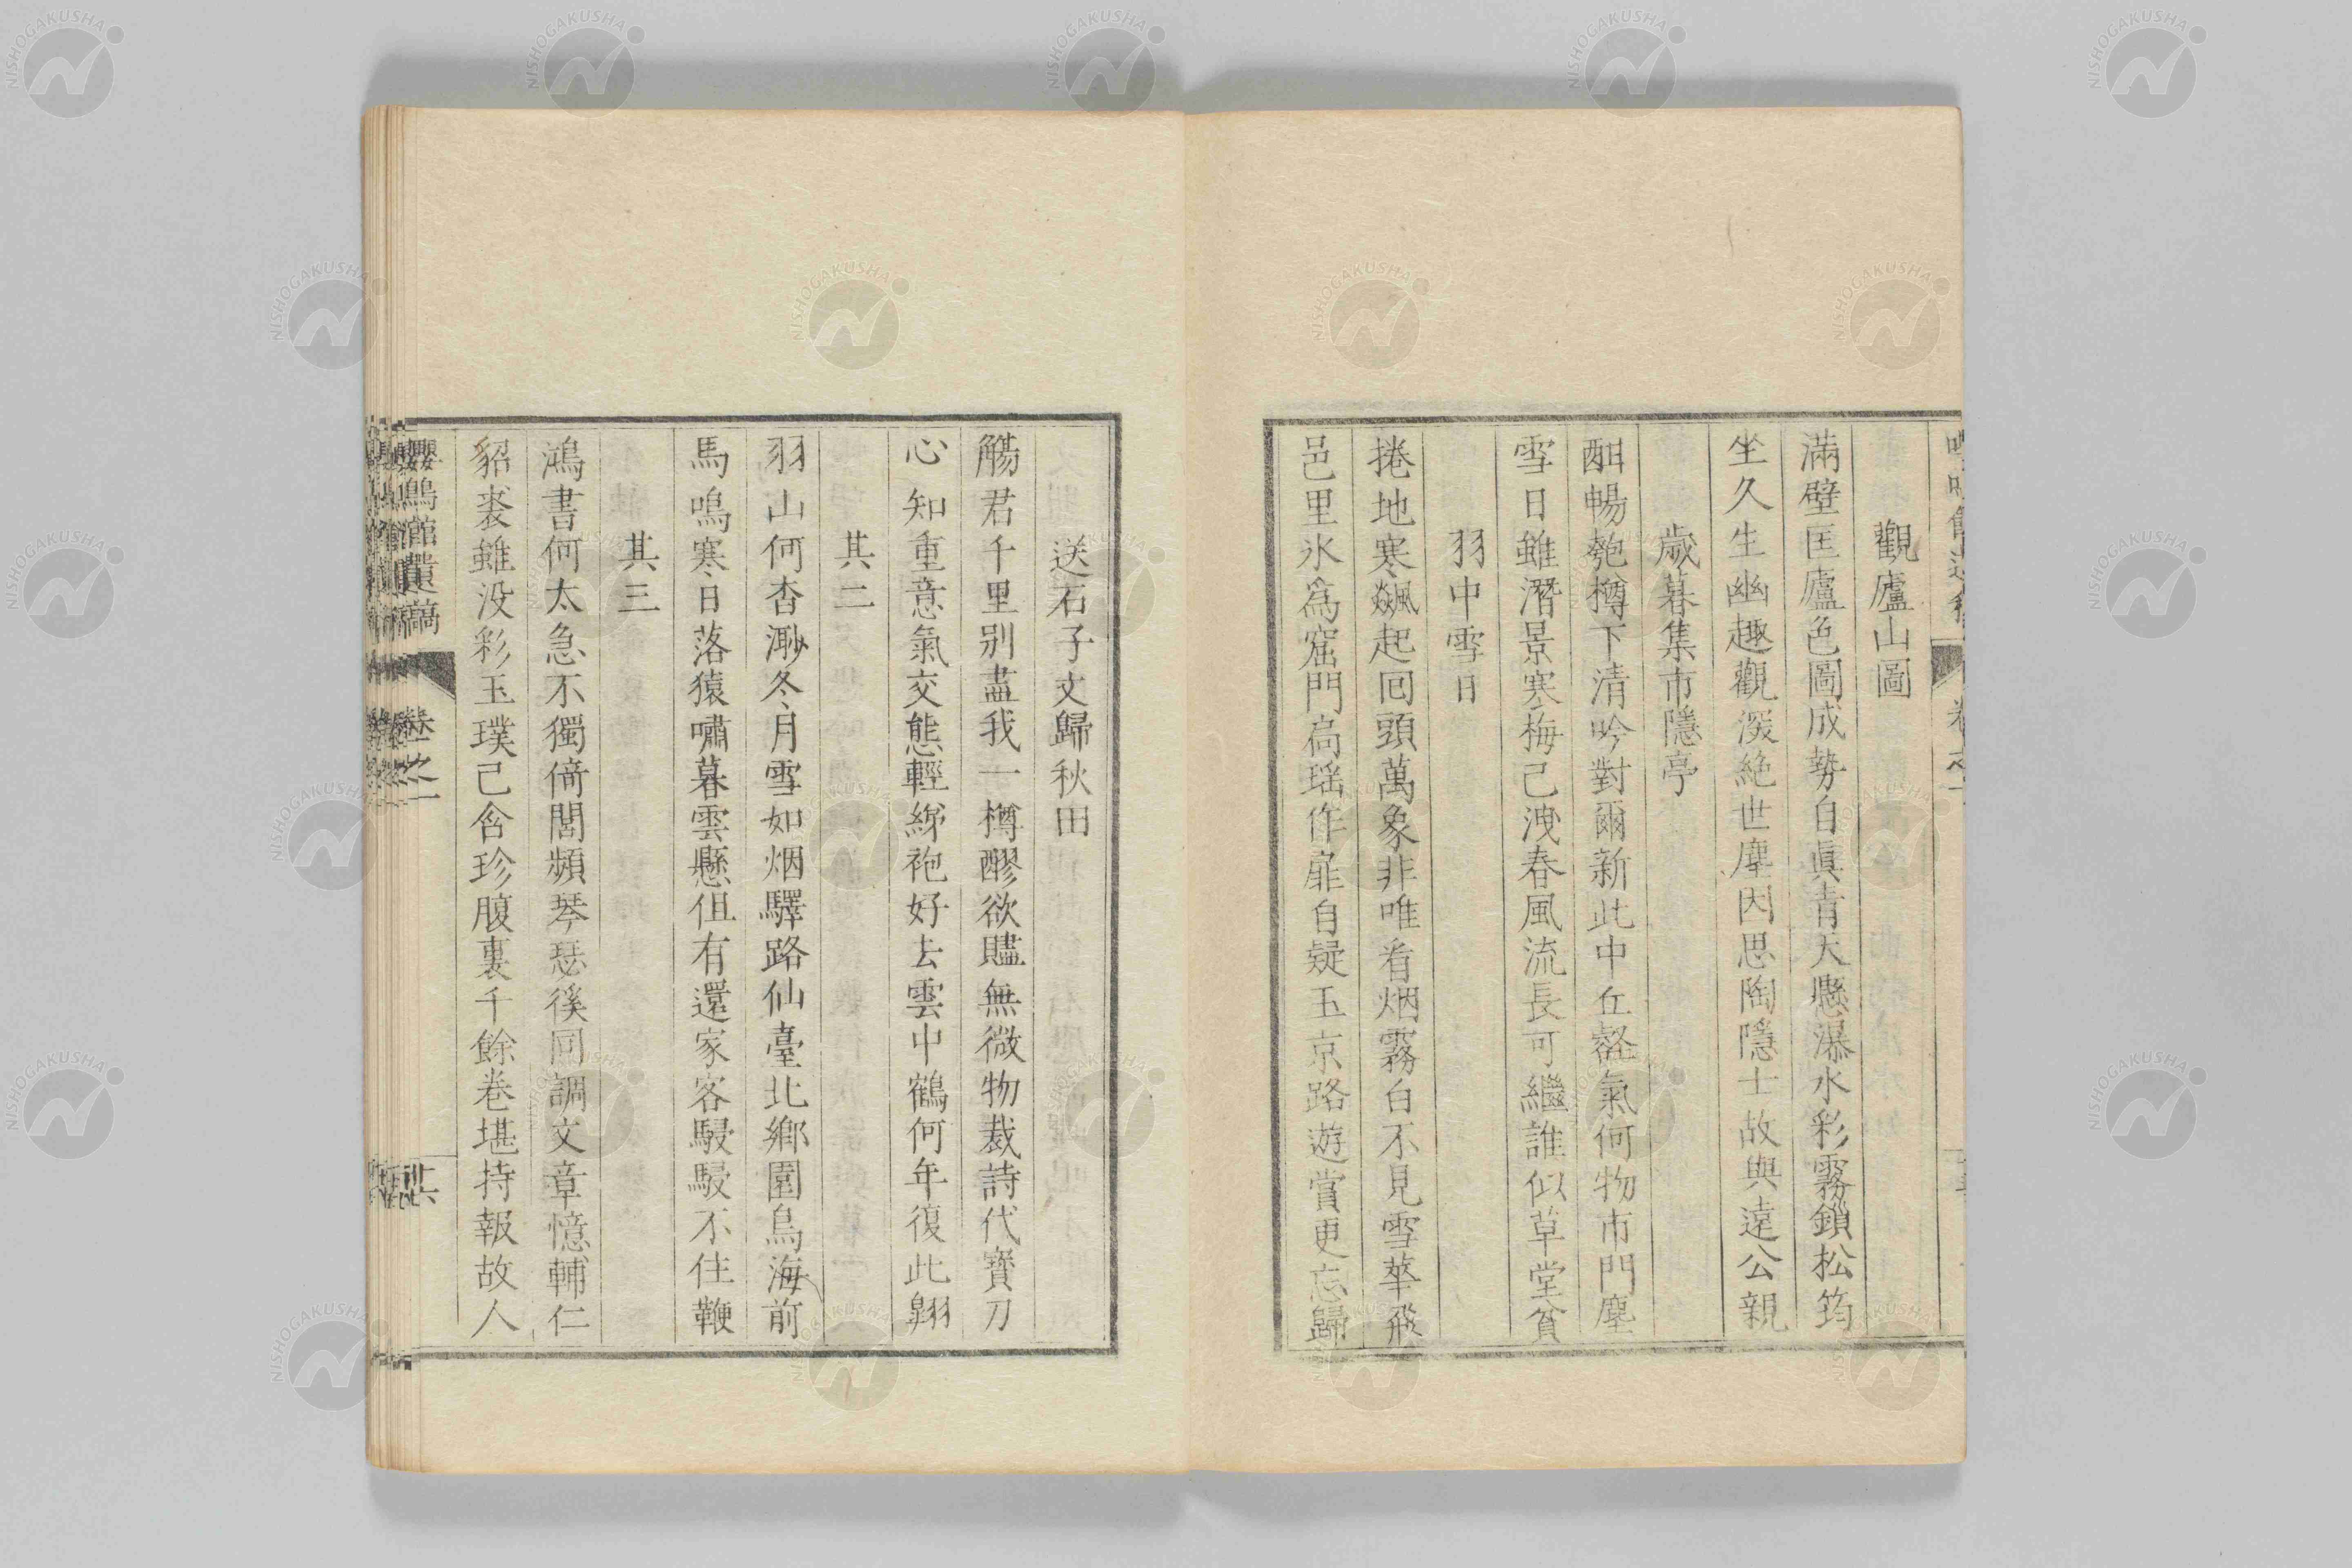 觀廬山圖
滿壁匡廬色圖成勢自眞青天懸瀑水彩霧鎖松筠
坐久生幽趣觀深絶世塵因思陶隱士故與遠公親
歲暮集市隱亭
酣暢匏樽下清吟對爾新此中丘壑氣何物市門塵
雪日雖潛景寒梅已洩春風流長可繼誰似草堂貧
羽中雪日
捲地寒飈起回頭萬象非唯看烟霧白不見雪華飛
邑里氷爲窟門扃瑶作扉自疑玉京路遊賞更忘歸
送石子文歸秋田
觴君千里别盡我一樽醪欲贐無微物裁詩代寳刀
心知重意氣交態輕綈袍好去雲中鶴何年復此翺
其二
羽山何杳渺冬月雪如烟驛路仙臺北郷園鳥海前
馬鳴寒日落猿嘯暮雲懸伹有還家客駸駸不住鞭
其三
鴻書何太急不獨倚閭頻琴瑟徯同調文章憶輔仁
貂裘雖没彩玉璞已含珍腹裏千餘卷堪持報故人
嚶鳴舘遺稿
卷之二
廿六
NISHOGAKUSHA